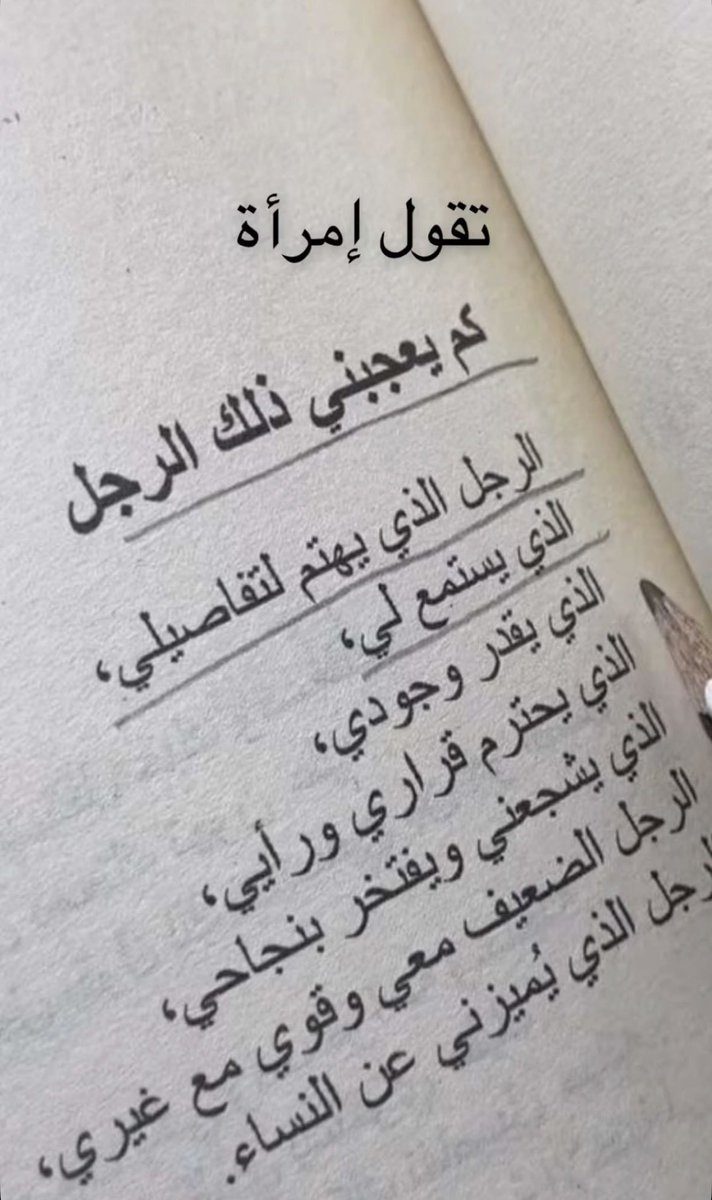 تقول إمرأة
كم يعجبني ذلك الرجل
الرجل الذي يهتم لتفاصيلي،
الذي يستمع لي،
الذي يقدر وجودي،
الذي يحترم قراري ورأيي،
الذي يشجعني ويفتخر بنجاحي،
الرجل الضعيف معي وقوي مع غيري،
الرجل الذي يُميزني عن النساء.